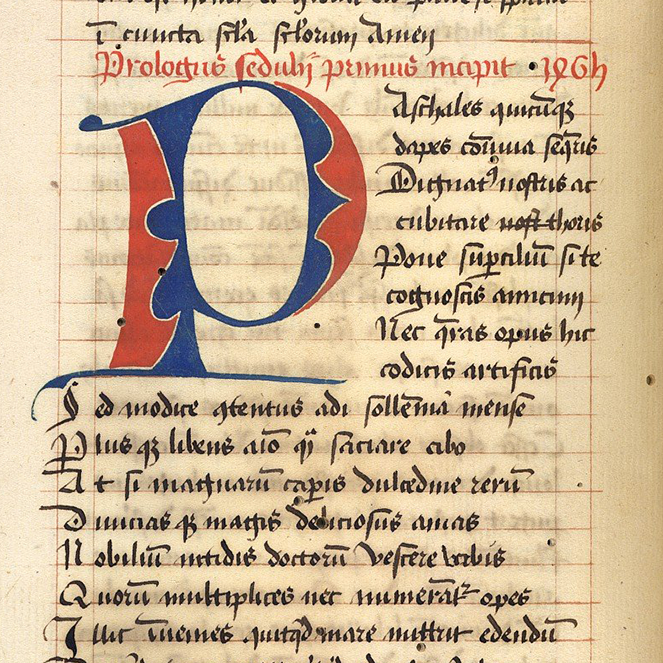 ī cūcta scl̄a scl̄orum Amen
Prologus sedulij primus incipit · 1ꝯ6h
PAschales quicūqꝫ
dapes cōuiua seqͥris
Dignatꝰ nostris ac
cubitare nost thoris
Pone suꝑciliū si te
cognoscis amicum
Nec q̄ras opus hic
codicis artificis
Sed modice ꝯtentus adi sollēnia mense
Plusqꝫ libens aīo qͣ saciare cibo
At si magnarū capis dulcedine rerū
Diuiciasqꝫ magis deliciosus amas
Nobiliū nitidis doctorū vescere vrbis
Quorū multiplices nec numerātꝛ opes
Illic īuenies quitqͥd mare nuttrit edendū